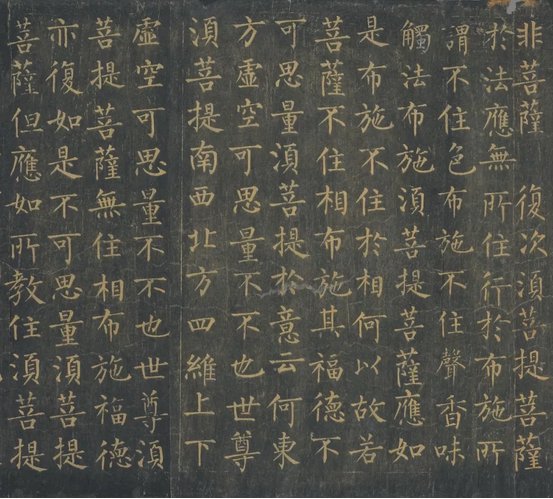 非菩薩　復次湏菩提菩薩
於法應無所住行於布施所
謂不住色布施不住聲香味
觸法布施湏菩提菩薩應如
是布施不住於相何以故若
菩薩不住相布施其福德不
可思量湏菩提於意云何東
方虛空可思量不不也世尊
湏菩提南西北方四維上下
虛空可思量不不也世尊湏
菩提菩薩無住相布施福德
亦復如是不可思量湏菩提
菩薩但應如所教住湏菩提